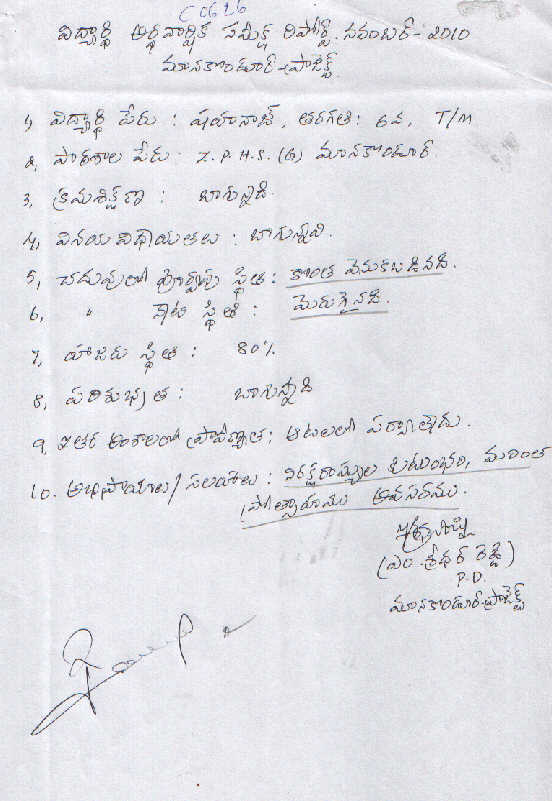 C0626
విద్యార్థి అర్థవార్షిక సమీక్ష రిపోర్ట్. నవంబర్-2010
మానకొండూర్-ప్రాజెక్ట్.
1, విద్యార్థి పేరు : షయానాజ్, తరగతి: 6వ, T/M
2, పాఠశాల పేరు : Z.P.H.S. (G) మానకొండూర్.
3, క్రమశిక్షణ : బాగున్నది.
4, వినయ విధాయతలు : బాగున్నవి.
5, చదువులో పూర్వపు స్థితి: కొంత వెనుకబడినది.
6, " నేటి స్థితి : మెరుగైనది.
7, హాజరు స్థితి : 80%
8, పరిశుభ్రత : బాగున్నది
9, ఇతర అంశాలలో ప్రావీణ్యత: ఆటలలో పర్వాలేదు.
10. అభిప్రాయాలు/సలహాలు : నిరక్షరాస్యుల కుటుంబం, మరింత
ప్రోత్సాహము అవసరము.
(ఎం. శ్రీధర్ రెడ్డి)
P.D.
మానకొండూర్-ప్రాజెక్ట్